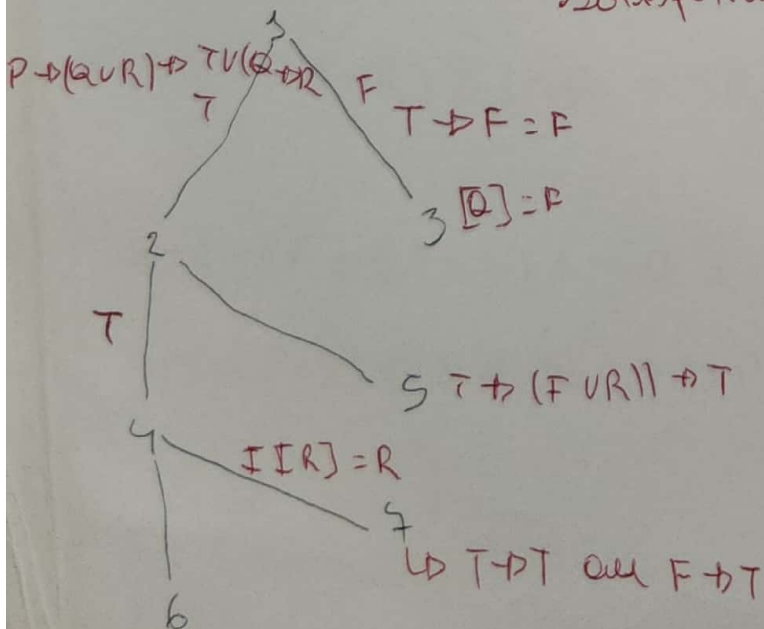 1
P→(Q∪R)→ T∪(Q→R
T
F
T → F = F
2
3 [Q] = F
T
5 T → (F ∪ R)) → T
4
I[R] = R
7
↳ T→T ou F→T
6